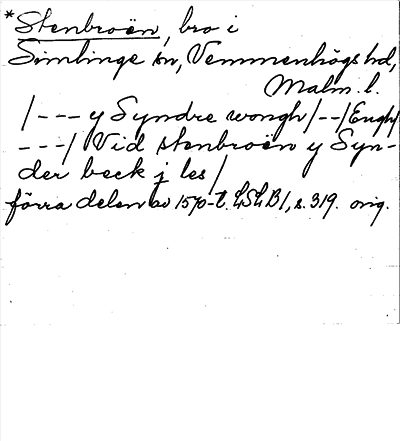 *Stenbroën, bro i
Simlinge sn, Vemmenhögs hd,
Malm. l.
/--- y Syndre wongh /--/ Engh/
---/ Vid stenbroën y Syn-
der beck j les /
förra delen av 1570-t. LSLB1, s. 319. orig.